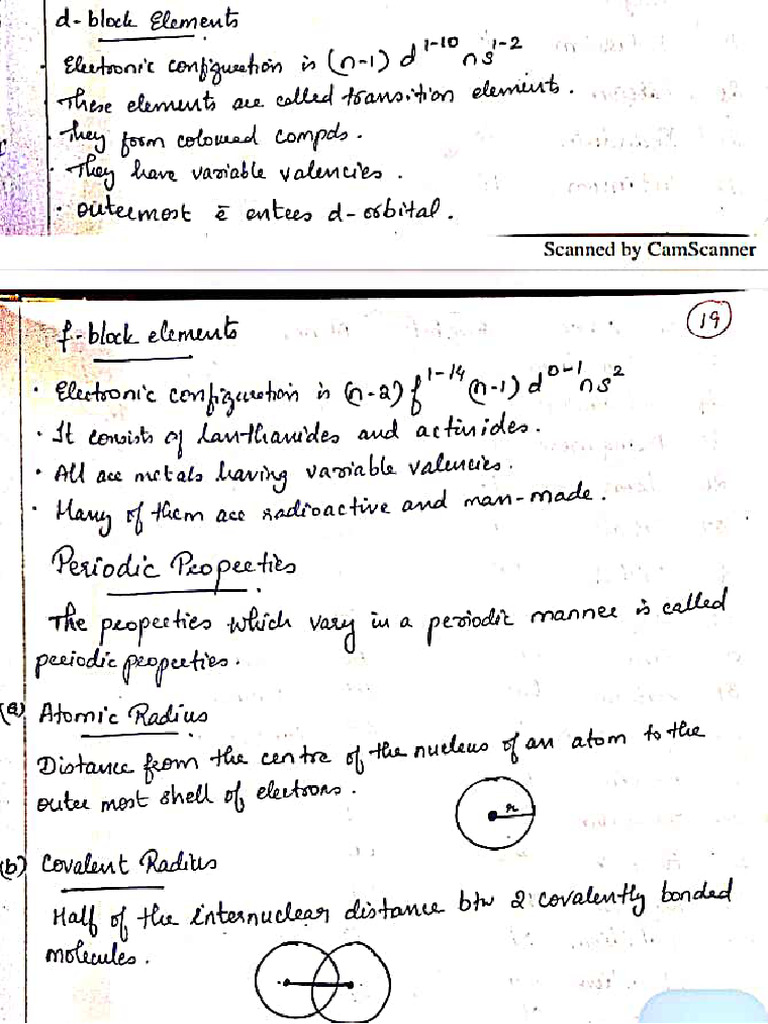 d-block Elements
· Electronic configuration is (n-1) d¹⁻¹⁰ ns¹⁻²
· These elements are called transition elements.
· They form coloured compds.
· They have variable valencies.
· outermost ē enters d-orbital.
Scanned by CamScanner
19
f-block elements
· Electronic configuration is (n-2) f¹⁻¹⁴ (n-1) d⁰⁻¹ ns²
· It consists of Lanthanides and actinides.
· All are metals having variable valencies.
· Many of them are radioactive and man-made.
Periodic Properties
The properties which vary in a periodic manner is called
periodic properties.
(a) Atomic Radius
Distance from the centre of the nucleus of an atom to the
outer most shell of electrons.
r
(b) Covalent Radius
Half of the internuclear distance btw 2 covalently bonded
molecules.